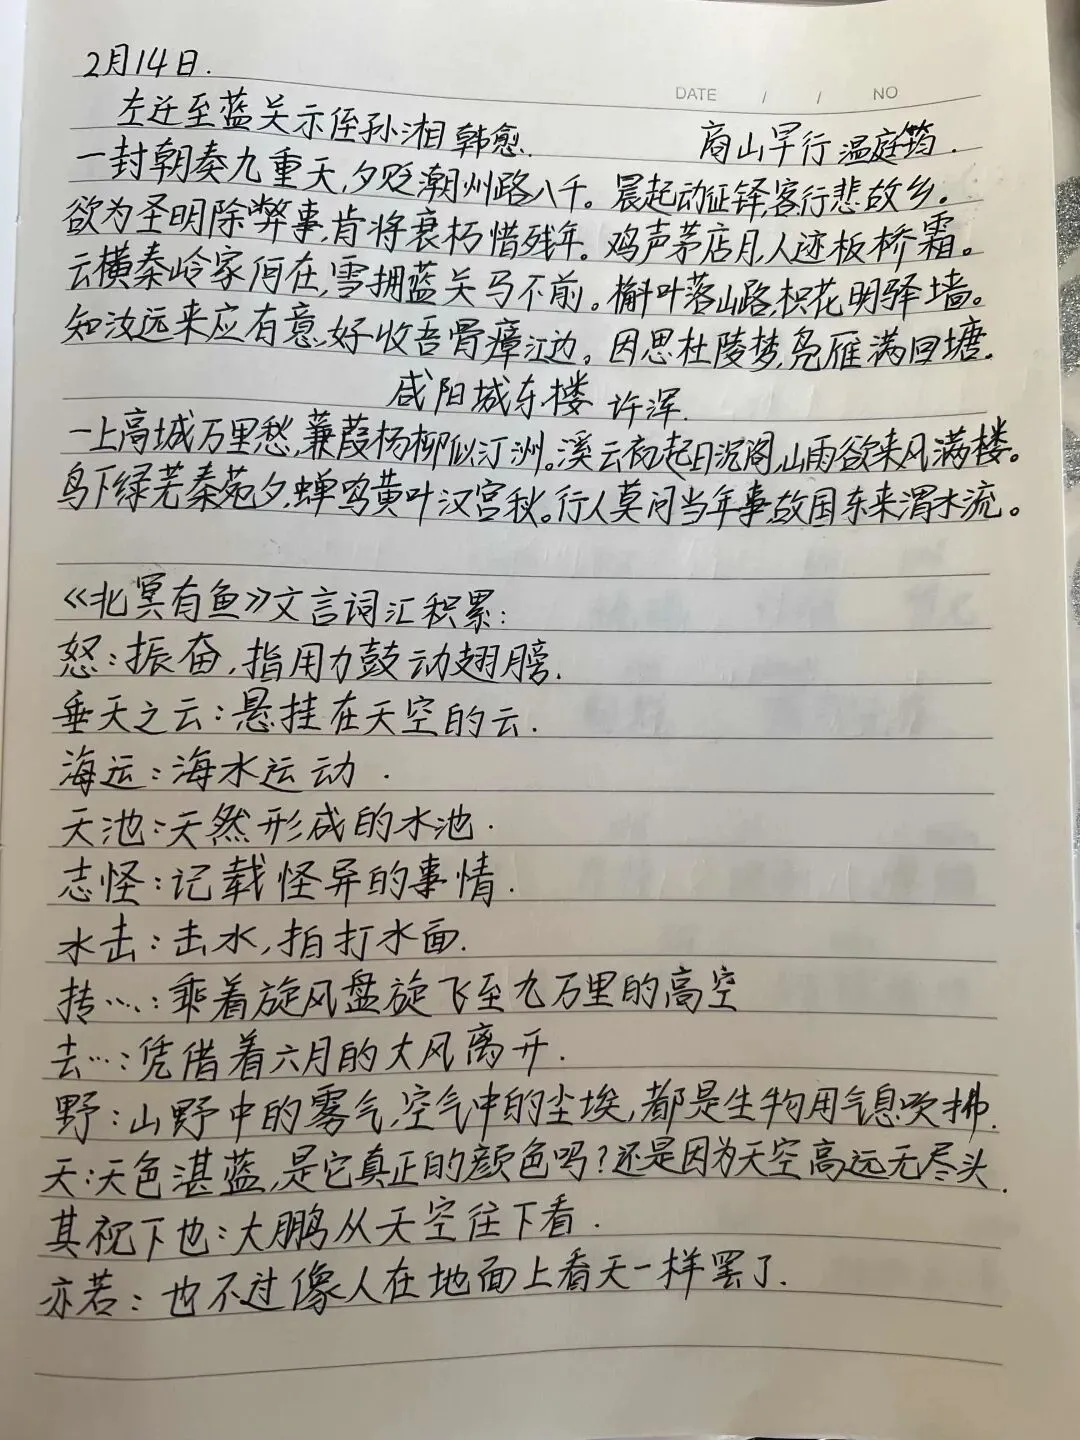 2月14日.
DATE / / NO
左迁至蓝关示侄孙湘 韩愈.
商山早行 温庭筠.
一封朝奏九重天,夕贬潮州路八千。晨起动征铎,客行悲故乡。
欲为圣明除弊事,肯将衰朽惜残年。鸡声茅店月,人迹板桥霜。
云横秦岭家何在,雪拥蓝关马不前。槲叶落山路,枳花明驿墙。
知汝远来应有意,好收吾骨瘴江边。因思杜陵梦,凫雁满回塘.
咸阳城东楼 许浑.
一上高城万里愁,蒹葭杨柳似汀洲。溪云初起日沉阁,山雨欲来风满楼。
鸟下绿芜秦苑夕,蝉鸣黄叶汉宫秋。行人莫问当年事,故国东来渭水流。
《北冥有鱼》文言词汇积累:
怒:振奋,指用力鼓动翅膀.
垂天之云:悬挂在天空的云.
海运:海水运动.
天池:天然形成的水池.
志怪:记载怪异的事情.
水击:击水,拍打水面.
抟…:乘着旋风盘旋飞至九万里的高空
去…:凭借着六月的大风离开.
野:山野中的雾气,空气中的尘埃,都是生物用气息吹拂.
天:天色湛蓝,是它真正的颜色吗?还是因为天空高远无尽头.
其视下也:大鹏从天空往下看.
亦若:也不过像人在地面上看天一样罢了.